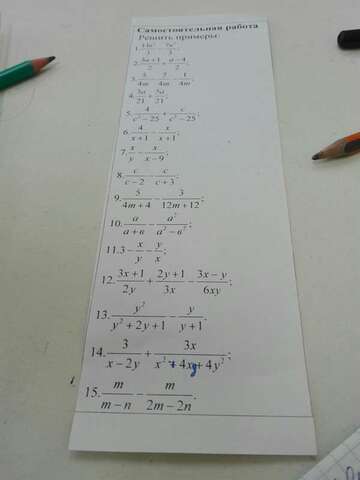 Самостоятельная работа
Решить примеры:
2. 5a+1/2 + a-4/2
3. 5/4m - 7/4m - 1/4m
4. 3a/21 + 5a/21
5. 4/c²-25 + c/c²-25;
6. 4/x+1 - x/x+1;
7. x/y - x/x-9;
8. c/c-2 - c/c+3;
9. 5/4m+4 - 3/12m+12;
10. a/a+в - a²/a²-в²;
11. 3 - x/y - y/x;
12. 3x+1/2y + 2y+1/3x - 3x-y/6xy;
13. y²/y²+2y+1 - y/y+1.
14. 3/x-2y + 3x/x²+4xy+4y²;
15. m/m-n - m/2m-2n.